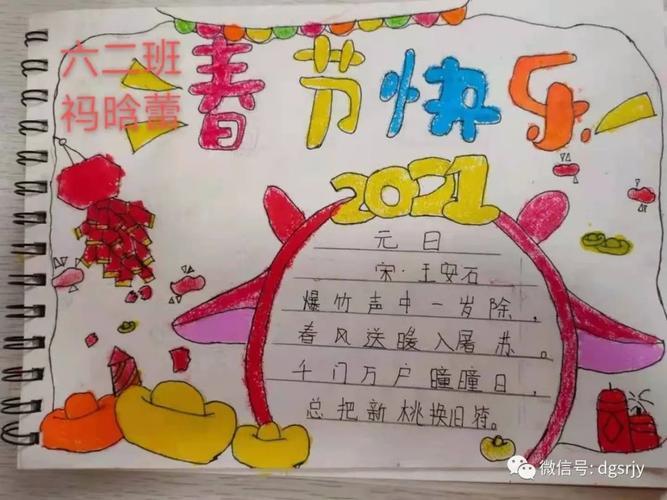 六二班
祃晗蕾
春节快乐
2021
元日
宋·王安石
爆竹声中一岁除，
春风送暖入屠苏。
千门万户曈曈日，
总把新桃换旧符。
微信号: dgsrjy